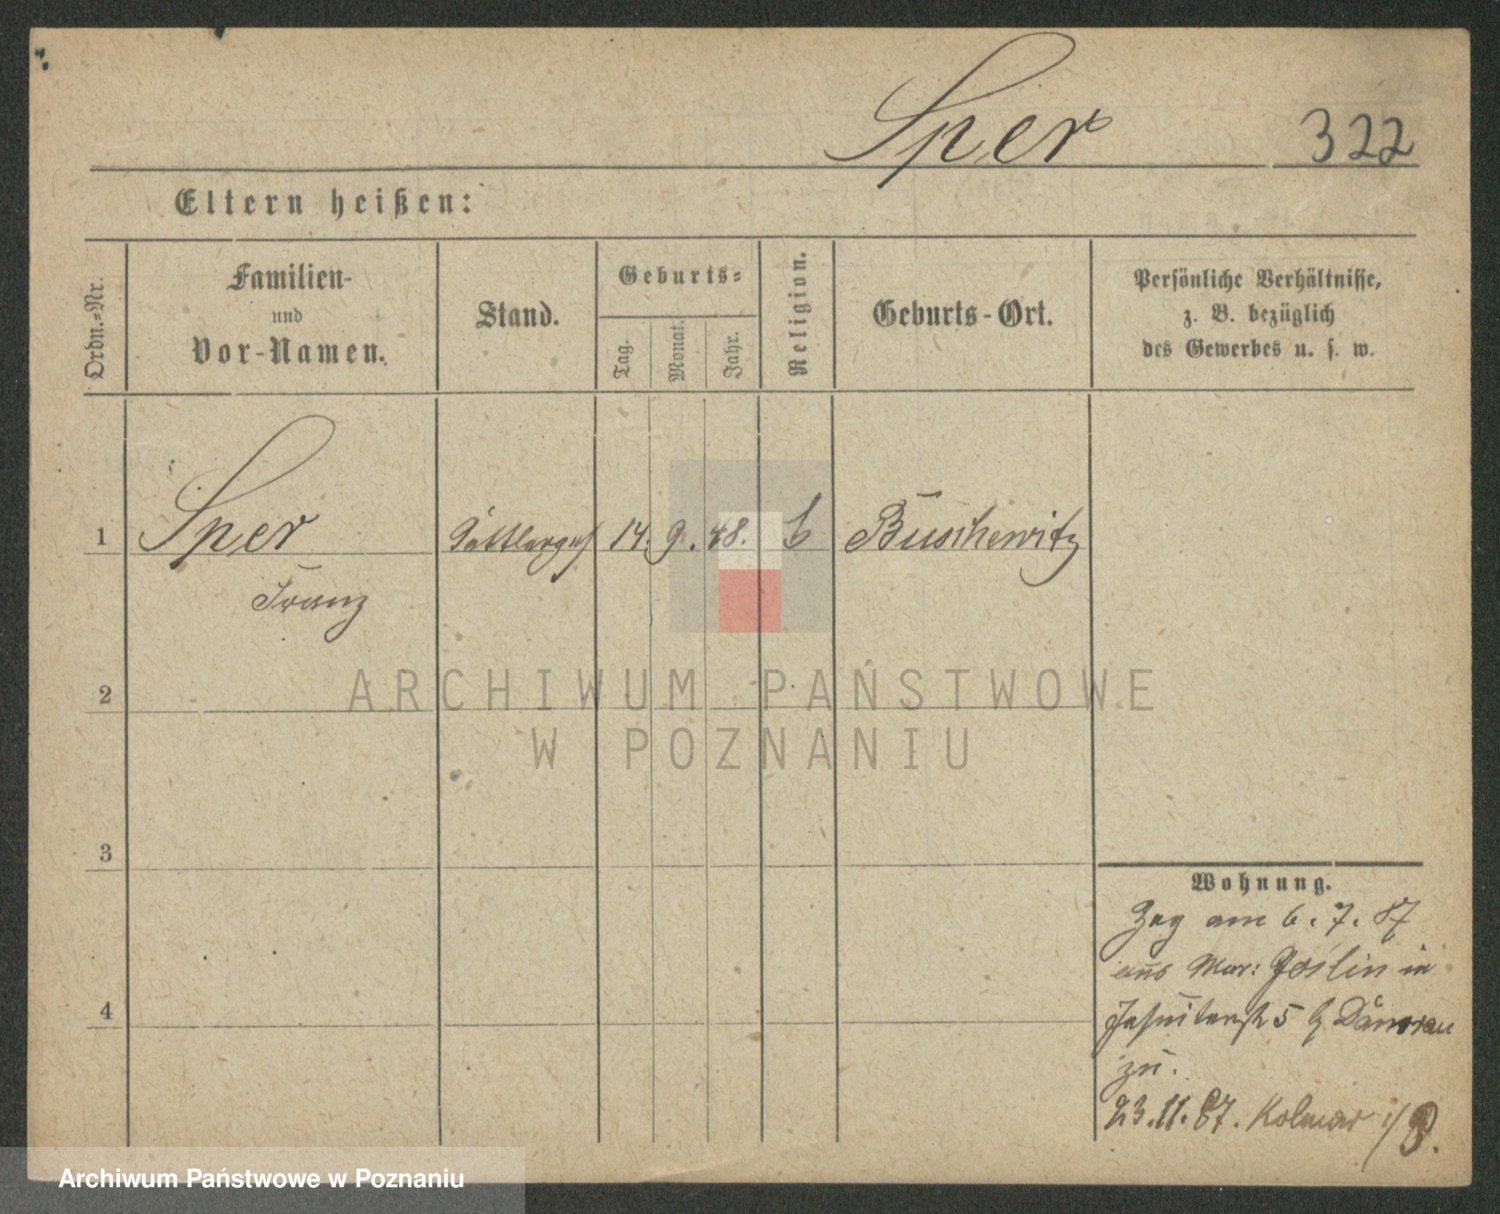 Sper 322
Eltern heißen:
Ordn.-Nr.
Familien-
und
Vor-Namen.
Stand.
Geburts-
Tag.
Monat.
Jahr.
Religion.
Geburts-Ort.
Persönliche Verhältnisse,
z. B. bezüglich
des Gewerbes u. s. w.
1 Sper 14. 9. 48. Buschewitz
Franz
2
ARCHIWUM PAŃSTWOWE
W POZNANIU
3
Wohnung.
Zog am 6. 7. 87
aus Mur: Goslin in
4
Jesuitenstr 5 b/ Dämrau
zu.
23.11.87. Kolmar i/P.
Archiwum Państwowe w Poznaniu